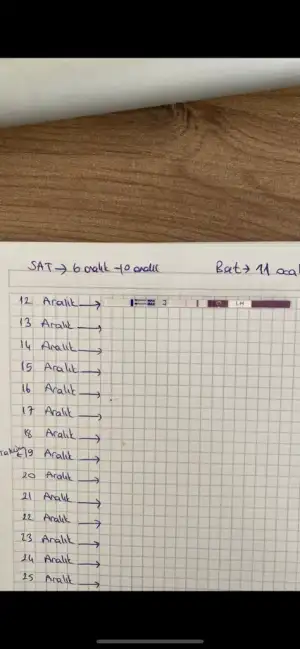 SAT → 6 aralık → 10 aralık
Bat → 11 aral
12 Aralık → LH
13 Aralık →
14 Aralık →
15 Aralık →
16 Aralık →
17 Aralık →
18 Aralık →
19 Aralık →
20 Aralık →
21 Aralık →
22 Aralık →
23 Aralık →
24 Aralık →
25 Aralık →